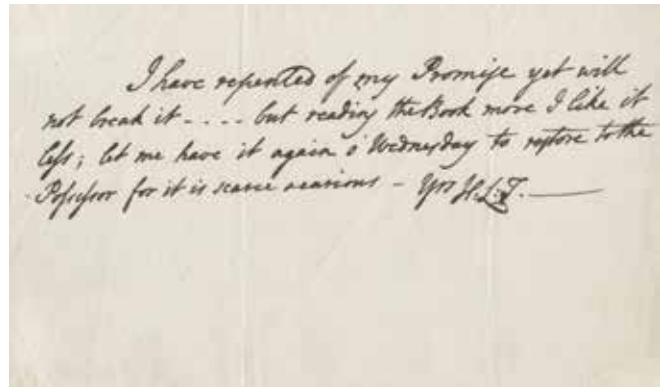 I have repented of my Promise yet will
not break it - . . . but reading the Book more I like it
less; let me have it again o' Wednesday to restore to the
Possessor for it is scarce - Yrs H:L:T. —